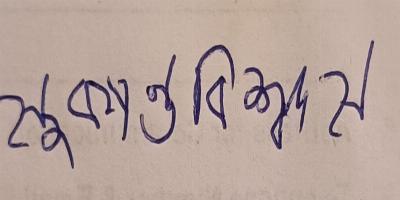 সুকান্ত বিশ্বাস